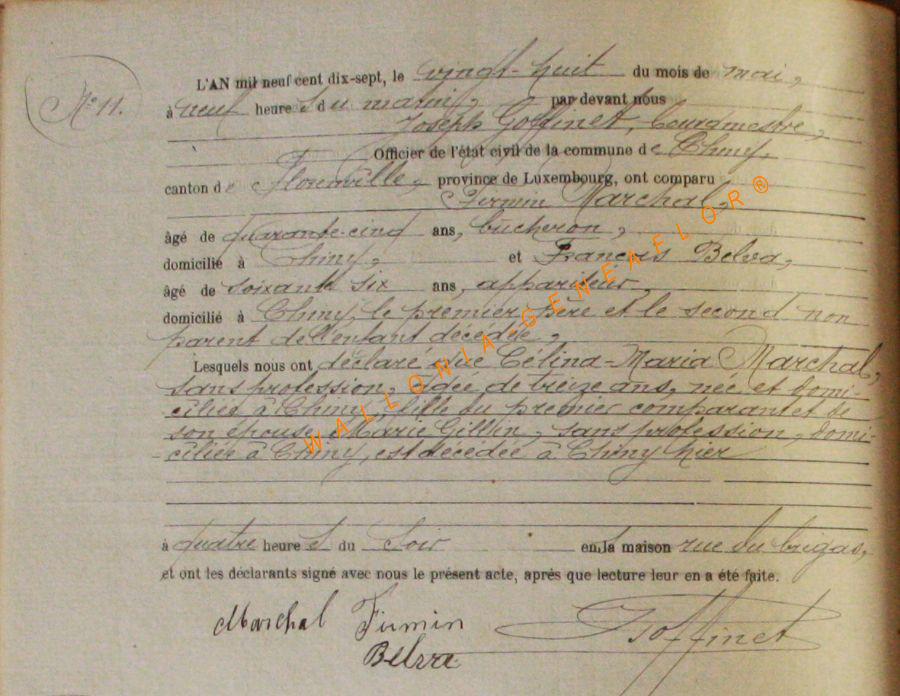 N° 11.
L'AN mil neuf cent dix-sept, le vingt-huit du mois de mai,
à neuf heures du matin, par devant nous
Joseph Goffinet, bourgmestre,
Officier de l'état civil de la commune de Chiny,
canton de Florenville, province de Luxembourg, ont comparu
Firmin Marchal,
âgé de quarante-cinq ans, bûcheron,
domicilié à Chiny, et François Belva,
âgé de soixante six ans, appariteur,
domicilié à Chiny, le premier père et le second non
parent de l'enfant décédée,
Lesquels nous ont déclaré que Célina-Maria Marchal,
sans profession, âgée de treize ans, née et domi-
-ciliée à Chiny, fille du premier comparant et de
son épouse Marie Gillin, sans profession, domi-
-ciliée à Chiny, est décédée à Chiny hier
à quatre heures du soir en la maison rue du brigas,
et ont les déclarants signé avec nous le présent acte, après que lecture leur en a été faite.
Marchal Firmin
JGoffinet
Belva
WALLONIA-GENEAELOR®